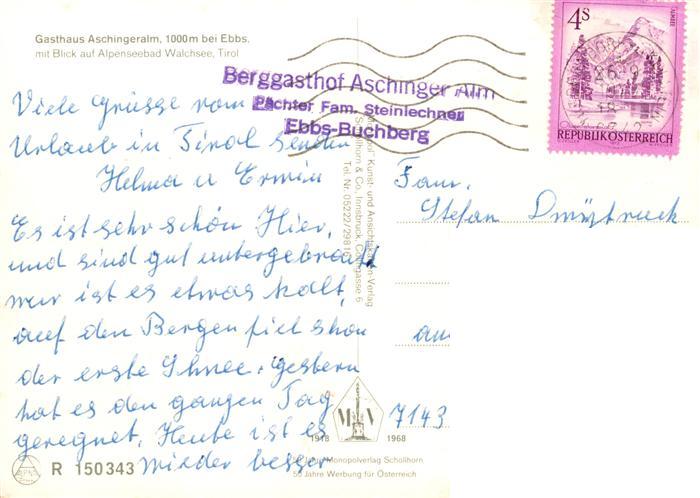 Gasthaus Aschingeralm, 1000m bei Ebbs,
mit Blick auf Alpenseebad Walchsee, Tirol
Berggasthof Aschinger Alm
Pächter Fam. Steinlechner
Ebbs-Buchberg
4 S
REPUBLIK ÖSTERREICH
Viele Grüsse vom
Urlaub in Tirol senden
Helma u Erwin
Es ist sehr schön Hier,
und sind gut untergebracht
nur ist es etwas kalt,
auf den Bergen fiel schon
der erste Schnee, gestern
hat es den ganzen Tag
geregnet, Heute ist es
wieder besser
Kunst- und Ansichtskarten-Verlag
Schöllhorn & Co., Innsbruck,
Tel. Nr. 05222/29816
Fam.
Stefan Dmytruck
7143
1918 1968
Monopolverlag Schöllhorn
50 Jahre Werbung für Österreich
R 150343